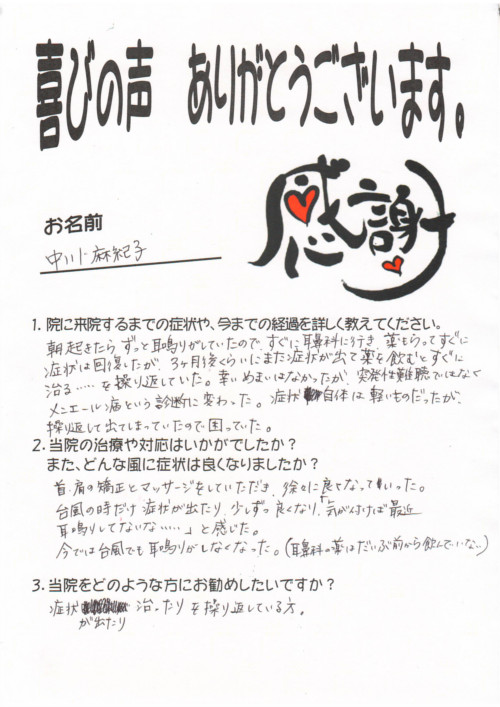 喜びの声 ありがとうございます。
感謝
お名前
中川麻紀子
1. 院に来院するまでの症状や、今までの経過を詳しく教えてください。
朝起きたら ずっと耳鳴りがしていたので、すぐに耳鼻科に行き、薬もらってすぐに
症状は回復したが、3ヶ月後ぐらいにまた症状が出て薬を飲むとすぐに
治る……を繰り返していた。幸いめまいはなかったが、突発性難聴ではなく
メニエール病という診断に変わった。症状 自体は軽いものだったが、
繰り返して出てしまっていたので困っていた。
2. 当院の治療や対応はいかがでしたか？
また、どんな風に症状は良くなりましたか？
首・肩の矯正とマッサージをしていただき、徐々に良くなっていった。
台風の時だけ症状が出たり、少しずつ良くなり、「気が付けば最近
耳鳴りしてないな……」と感じた。
今では台風でも耳鳴りがしなくなった。(耳鼻科の薬はだいぶ前から飲んでいない)
3. 当院をどのような方にお勧めしたいですか？
症状 が出たり 治ったり を繰り返している方。